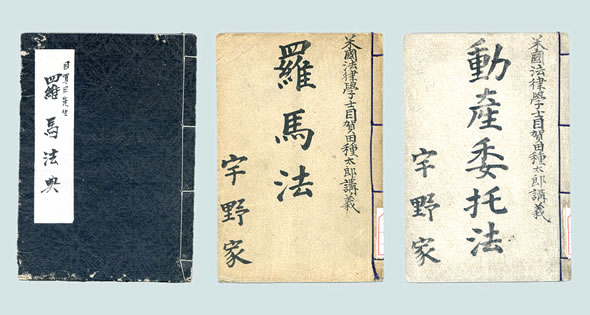 目賀田先生
羅馬法典
米國法律學士目賀田種太郎講義
羅馬法
宇野家
米國法律學士目賀田種太郎講義
動產委托法
宇野家